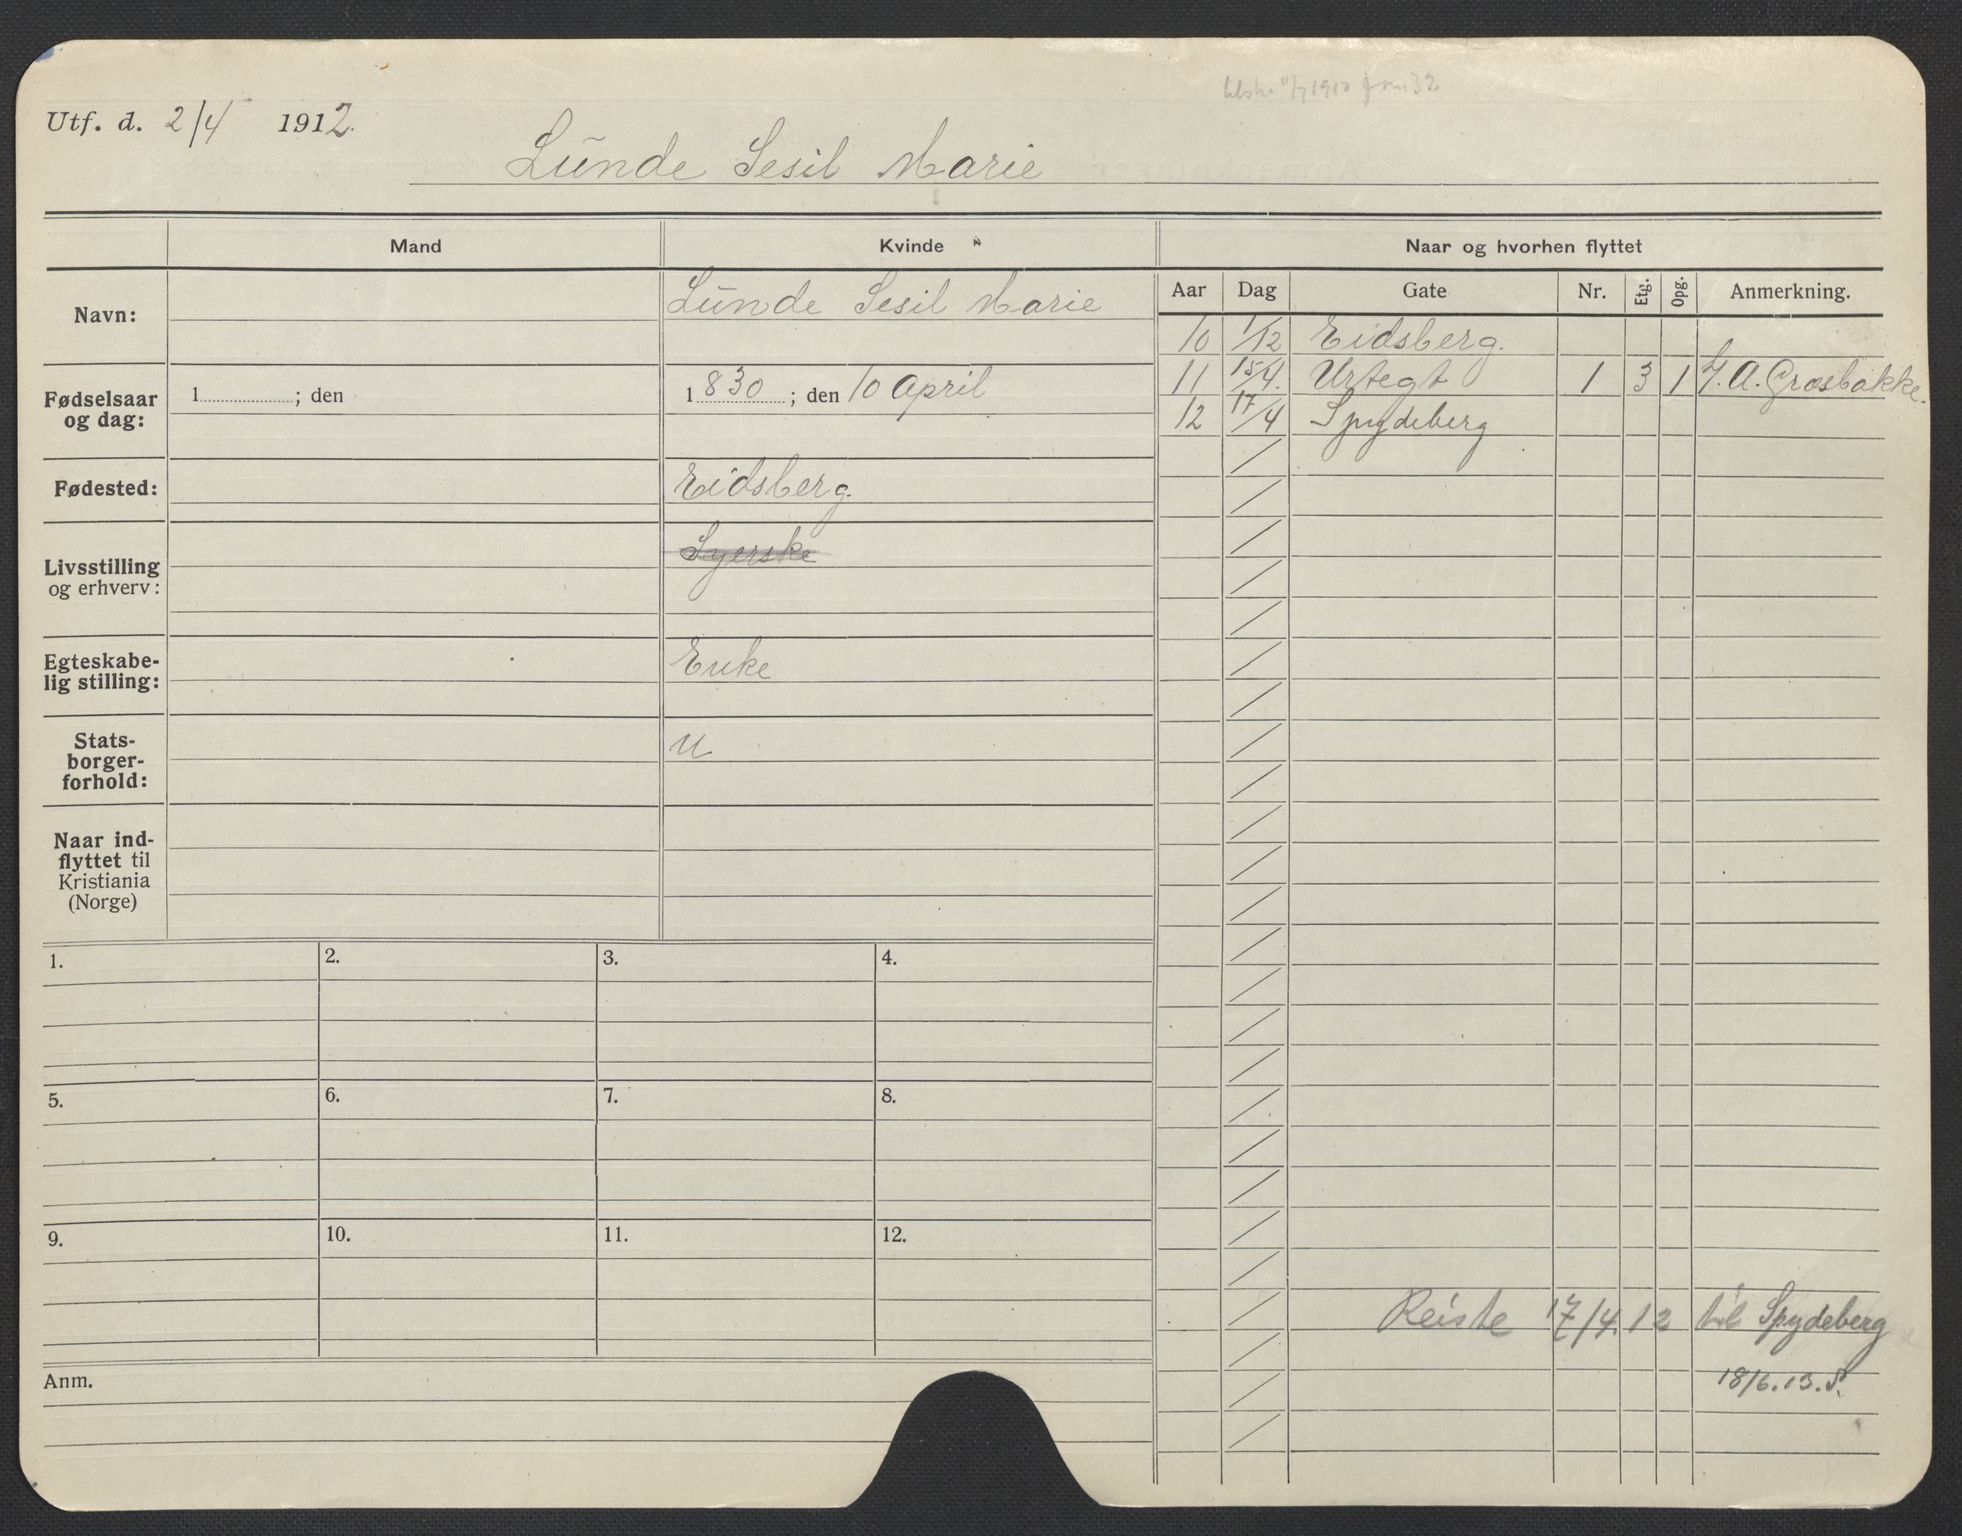 Utf. d. 2/4 1912.
Lunde Sesil Marie
Mand
Kvinde
Naar og hvorhen flyttet
Navn:
Lunde Sesil Marie
Fødselsaar og dag:
1 ; den
1830 ; den 10 April
Fødested:
Eidsberg.
Livsstilling og erhverv:
Syerske
Egteskabe-
lig stilling:
Enke
Stats-
borger-
forhold:
u
Naar ind-
flyttet til
Kristiania
(Norge)
Aar Dag Gate Nr. Etg. Opg. Anmerkning.
10 1/12 Eidsberg.
11 15/4. Urtegt 1 3 1 A. Græsbakke.
12 17/4 Spydeberg
1. 2. 3. 4.
5. 6. 7. 8.
9. 10. 11. 12.
Anm.
Reiste 17/4.12 til Spydeberg
18/6.13.S.